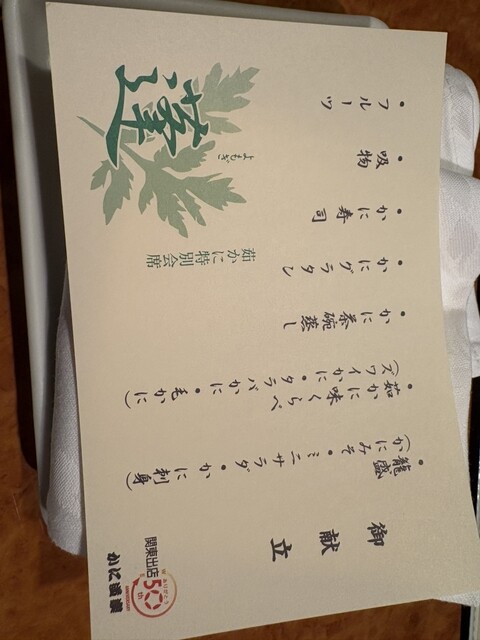 御献立
・籠盛
(かにみそ・ミニサラダ・かに刺身)
・茹かに味くらべ
(ズワイかに・タラバかに・毛かに)
・かに茶碗蒸し
・かにグラタン
・かに寿司
・吸物
・フルーツ
茹かに特別会席
蓬
よもぎ
関東出店
50th
ANNIVERSARY
かに道楽